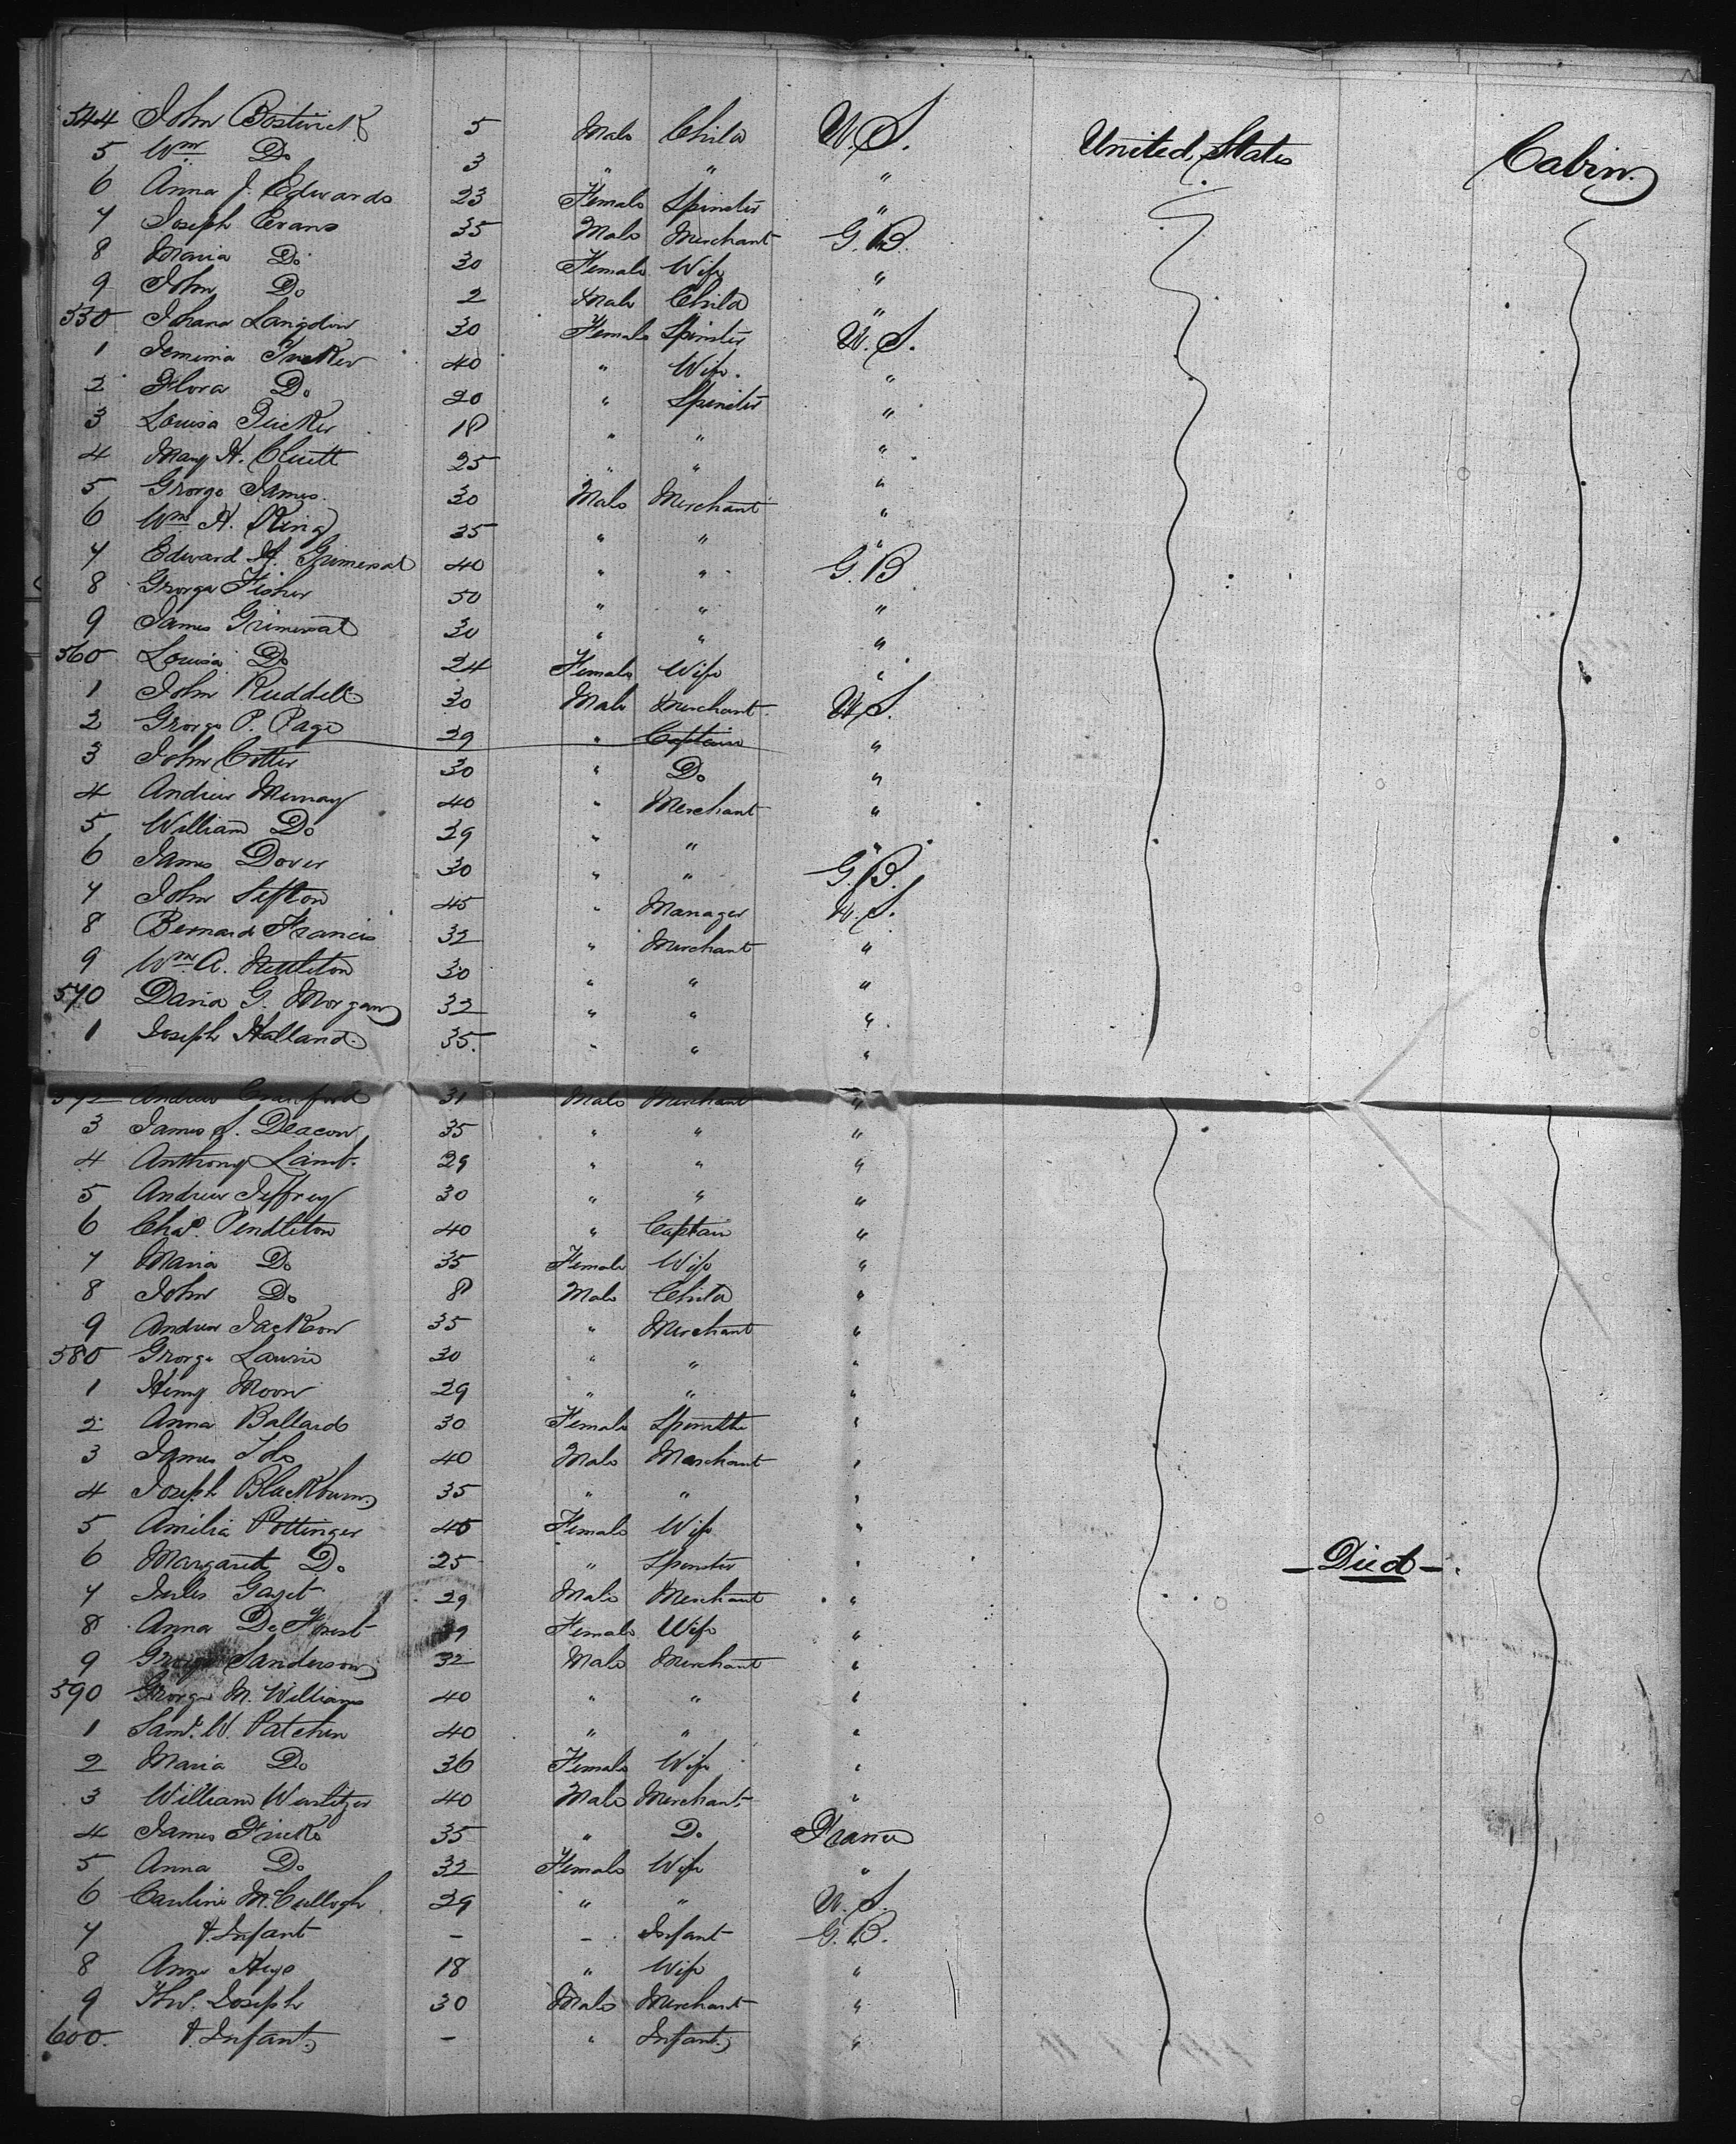 544 John Bostwick 5 Male Child U.S. United States Cabin.
5 Wm Do 3 " " "
6 Anna J. Edwards 23 Female Spinster "
7 Joseph Evans 35 Male Merchant G.B.
8 Maria Do 30 Female Wife "
9 John Do 2 Male Child "
550 Johana Langdon 30 Female Spinster U.S.
1 Jemima Tucker 40 " Wife. "
2 Flora Do 20 " Spinster "
3 Louisa Tucker 18 " " "
4 Mary H. Cluett 25 " " "
5 George James 30 Male Merchant "
6 Wm H. King 35 " " "
7 Edward H. 40 " " G.B
8 George Fisher 50 " " "
9 James 30 " " "
560 Louisa Do 24 Female Wife "
1 John Ruddell 30 Male Merchant U.S.
2 George P. Page 29 " Captain "
3 John Cotter 30 " Do "
4 Andrew Murray 40 " Merchant "
5 William Do 29 " " "
6 James Dover 30 " " G.B.
7 John Sefton 45 " Manager U.S.
8 Bernard Francis 32 " Merchant "
9 Wm A. Nettleton 30 " " "
570 David G. Morgan 32 " " "
1 Joseph Halland 35. " " "
572 Andrew Crawford 31 Male Merchant "
3 James S. Deacon 35 " " "
4 Anthony Lamb. 29 " " "
5 Andrew Jeffrey 30 " " "
6 Chas. Pendleton 40 " Captain "
7 Maria Do 35 Female Wife "
8 John Do 8 Male Child "
9 Andrew Jackson 35 " Merchant "
580 George Laurie 30 " " "
1 Henry Moon 29 " " "
2 Anna Ballard 30 Female Spinster "
3 James 40 Male Merchant "
4 Joseph Blackburn 35 " " "
5 Amelia Pottinger 45 Female Wife "
6 Margaret Do. 25 " Spinster " - Died -
7 Jules Gazet 29 Male Merchant "
8 Anna De Forest 39 Female Wife "
9 George Sanderson 32 Male Merchant "
590 George M. Williams 40 " " "
1 Saml. W. Patchen 40 " " "
2 Maria Do 36 Female Wife "
3 William Wurlitzer 40 Male Merchant "
4 James Fricke 35 " Do. France
5 Anna Do. 32 Female Wife "
6 Caroline McCullogh 29 " " U.S.
7 & Infant - - Infant G.B.
8 Ann 18 " Wife "
9 Joseph 30 Male Merchant "
600. & Infant - " Infant "